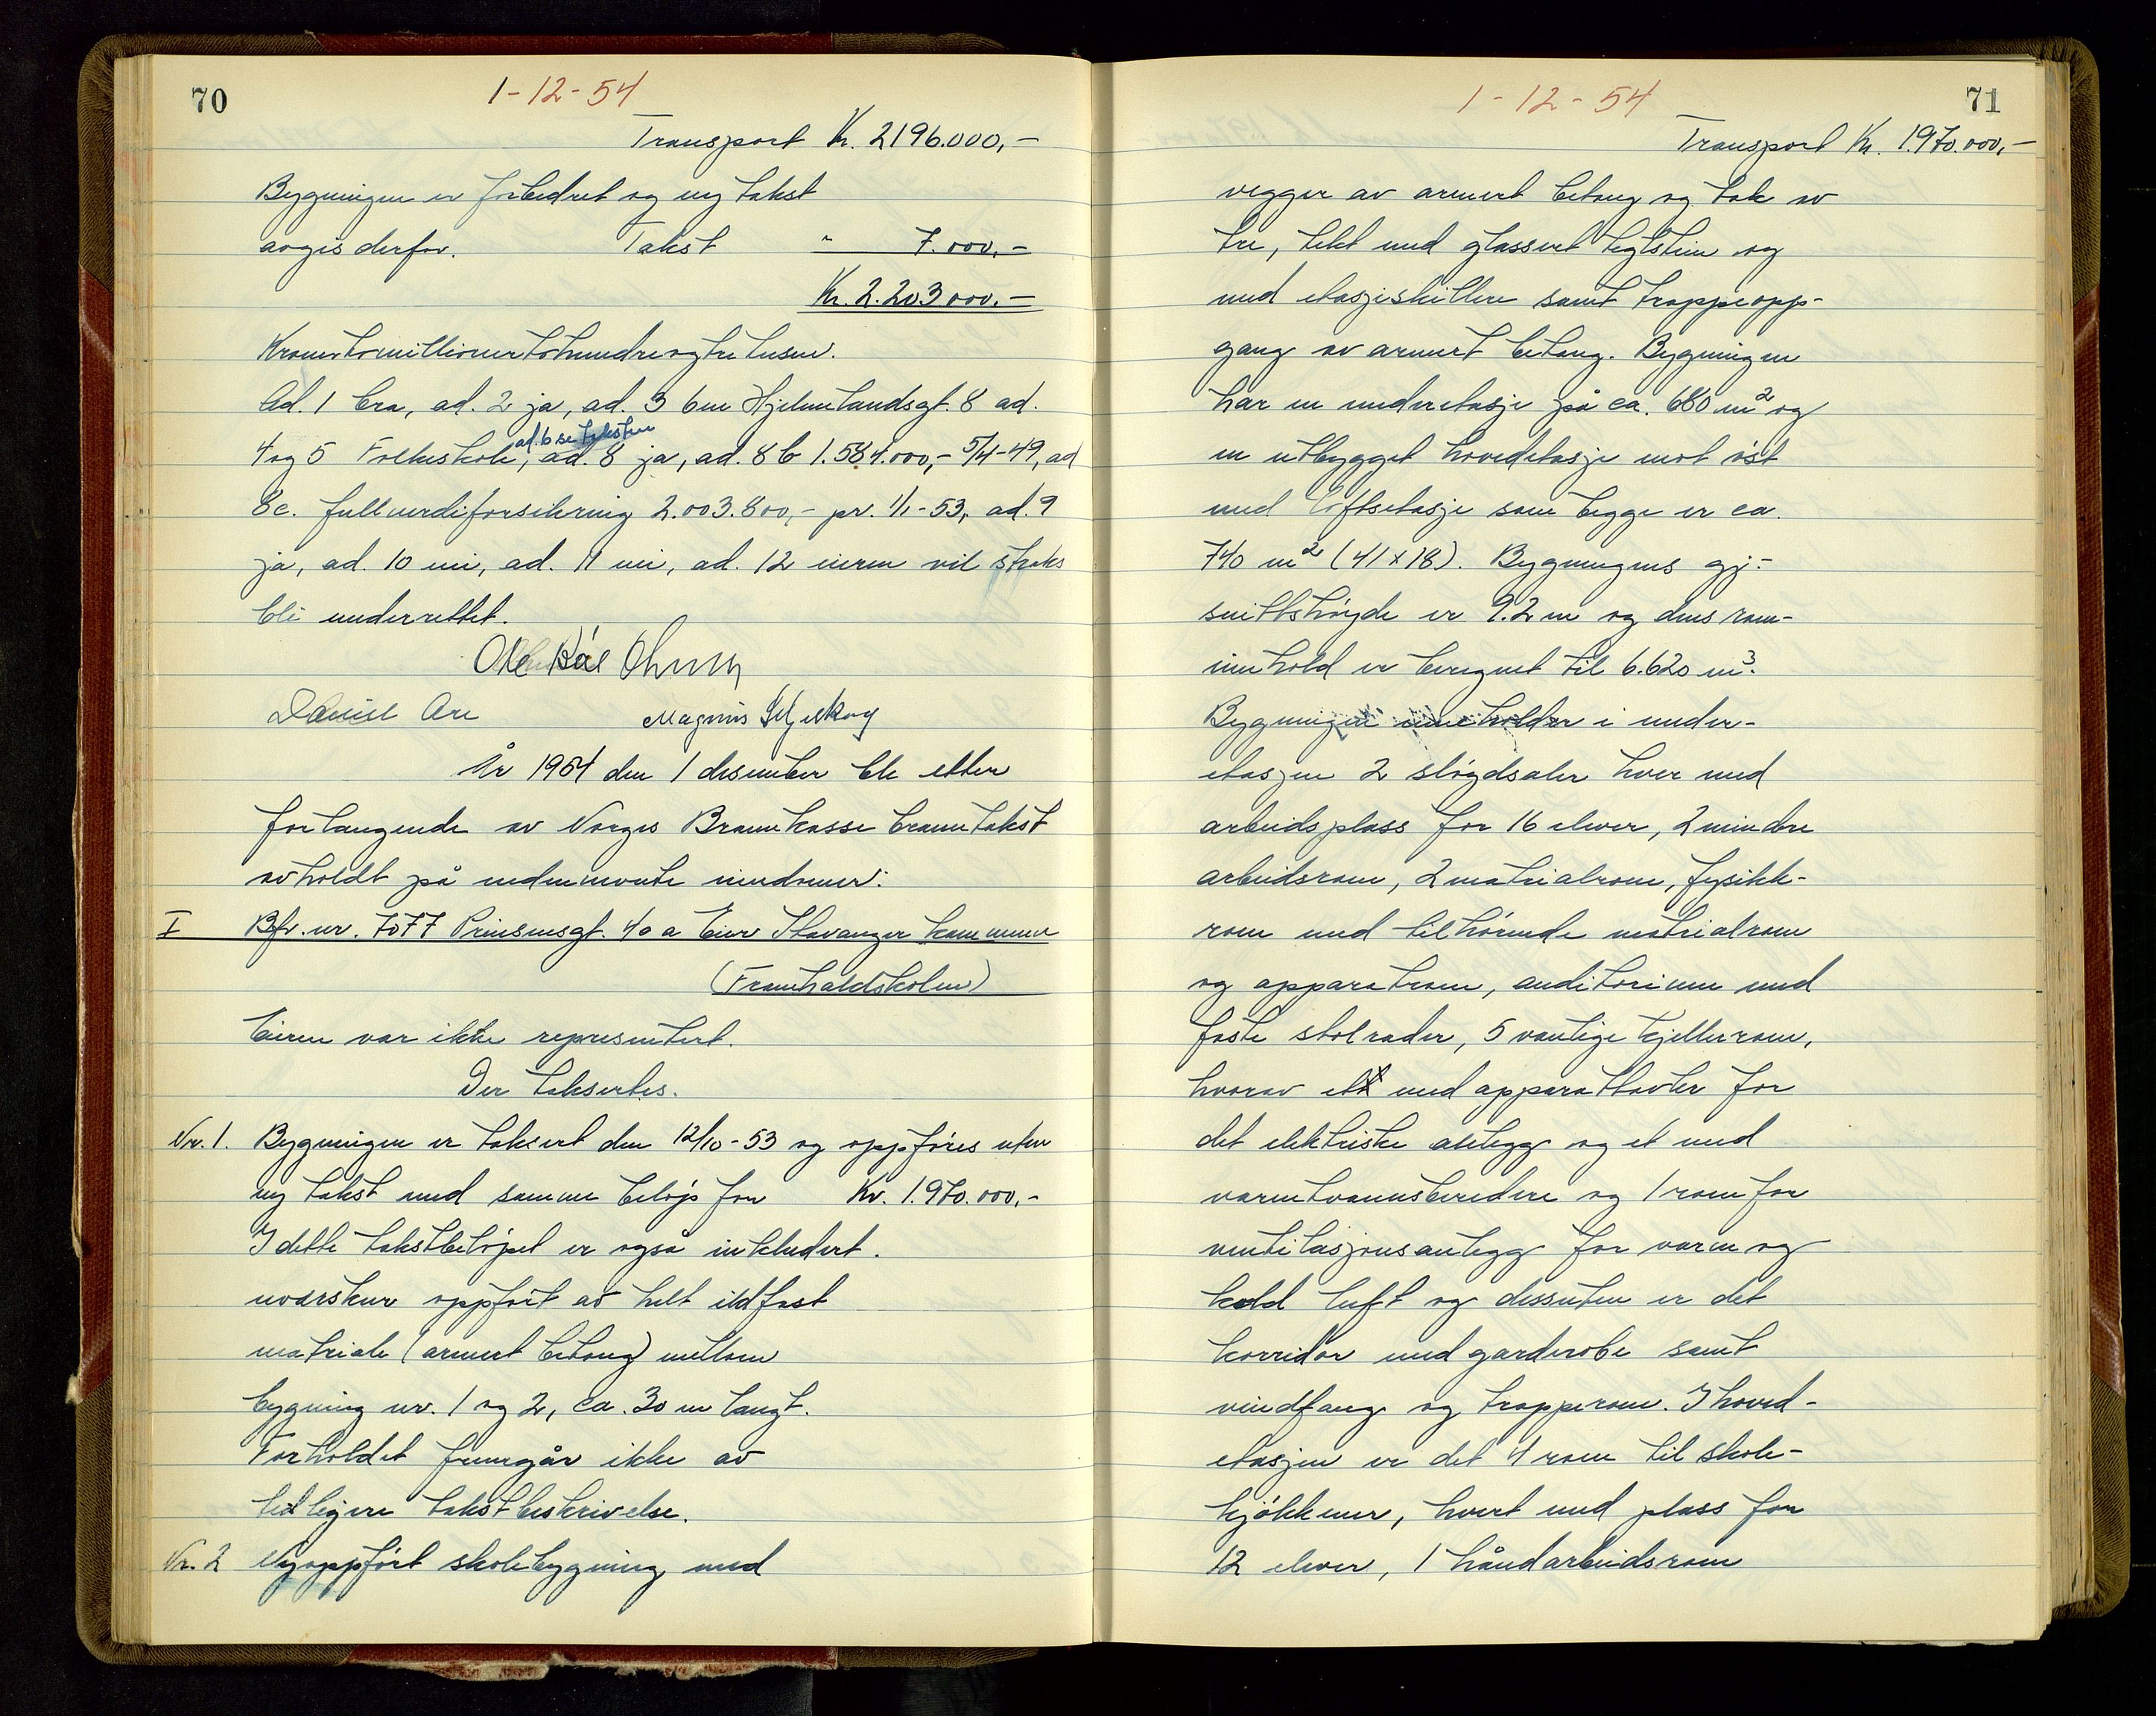 70
1-12-54
Transport Kr. 2196.000,-
Bygningen er forbedret og ny takst
avgis derfor. Takst " 7.000,-
Kr. 2.203000.-
Kroner tomillionertohundreogtretusen.
Ad. 1 bra, ad. 2 ja, ad. 3 6m Hjelmelandsgt. 8 ad.
ad. 6 se taksten
4 og 5 Folkeskole, ad. 8 ja, ad. 8 b 1.584.000,- 5/4-49, ad
8c. fullverdiforsikring 2.003.800,- pr. 1/1-53, ad. 9
ja, ad. 10 nei, ad. 11 nei, ad. 12 eieren vil straks
bli underrettet.
Daniel Are Magnus
År 1954 den 1 desember ble etter
forlangende av Norges Brannkasse branntakst
avholdt på nedennevnte eiendomer:
I Bfr. nr. 7077 Prinsensgt. 40 a Eier Stavanger kommune
(Framhaldskolen)
Eieren var ikke representert.
Der takseertes.
Nr. 1. Bygningen er taksert den 12/10-53 og oppføres uten
ny takst med samme beløp for Kr. 1.970.000,-
I dette takstbeløpet er også inkludert.
uværskur oppført av helt ildfast
matriale (armert betong) mellom
bygning nr. 1 og 2, ca. 30 m langt.
Forholdet fremgår ikke av
tidligere takstbeskrivelse.
Nr. 2 Nyoppført skolebygning med
71
1-12-54
Transport Kr. 1.970.000,-
vegger av armert betong og tak av
tre, tekt med glassert teglstein og
med etasjeskillere samt trappeopp-
gang av armert betong. Bygningen
har en underetasje på ca. 680 m2 og
en utbygget hovedetasje mot øst
med loftsetasje som begge er ca.
740 m2 (41x18). Bygningens gj.-
snittshøyde er 9.2 m og dens rom-
innhold er beregnet til 6.620 m3.
Bygningen inneholder i under-
etasjen 2 sløydsaler hver med
arbeidsplass for 16 elever, 2 mindre
arbeidsrom, 2 matrialrom, fysikk-
rom med tilhørende matrialrom
og apparatrom, auditorium med
faste stolrader, 5 vanlige kjellerrom,
hvorav ett med apparattavler for
det elektriske anlegg og et med
varmtvannsberedere og 1 rom for
ventilasjonsanlegg for varm og
kold luft og dessuten er det
korridor med garderobe samt
vindfang og trapperom. I hoved-
etasjen er det 4 rom til skole-
kjøkkener, hvert med plass for
12 elever, 1 håndarbeidsrom